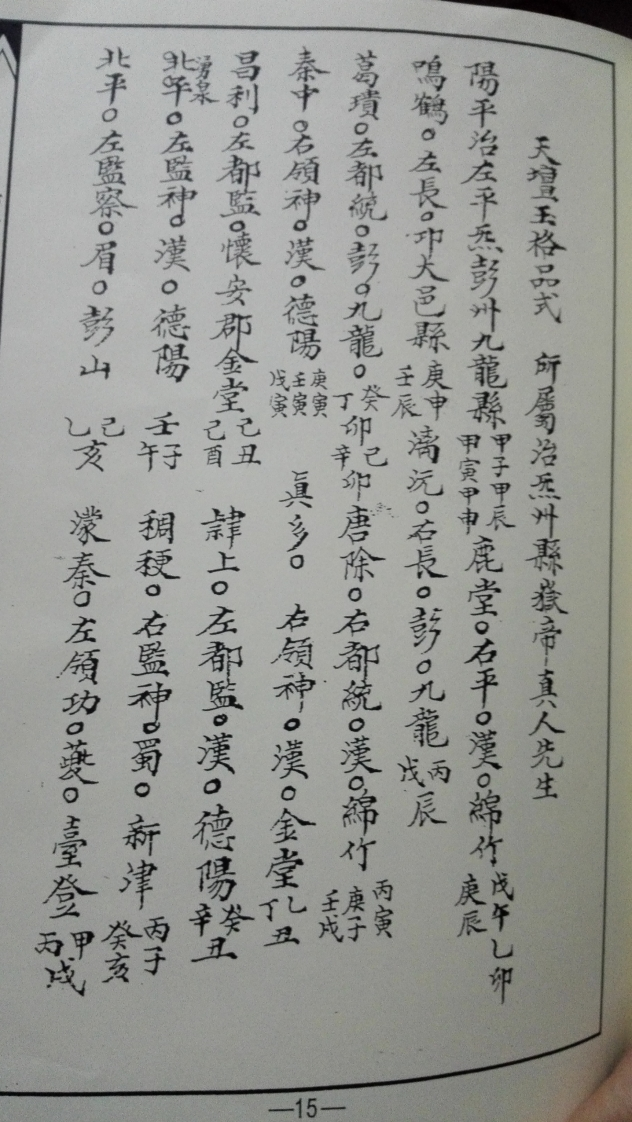 天壇玉格品式　所屬治炁州縣嶽帝真人先生
陽平治左平炁彭州九龍縣甲子甲辰甲寅甲申鹿堂○右平○漢○綿竹戊午乙卯庚辰
鳴鶴○左長○邛大邑縣庚申壬辰漓沅○右長○彭○九龍丙戊辰
葛璝○左都統○彭○九龍○癸丁卯己辛卯唐除○右都統○漢○綿竹丙寅庚子壬戌
秦中○右領神○漢○德陽庚寅壬寅戊寅真多○右領神○漢○金堂乙丁丑
昌利○左都監○懷安郡金堂己丑己酉隸上○左都監○漢○德陽癸辛丑
北平湧泉○左監神○漢○德陽壬子午稠稉○右監神○蜀○新津丙子癸亥
北平○左監察○眉○彭山己乙亥濛秦○左領功○夔○臺登甲丙戌
—15—